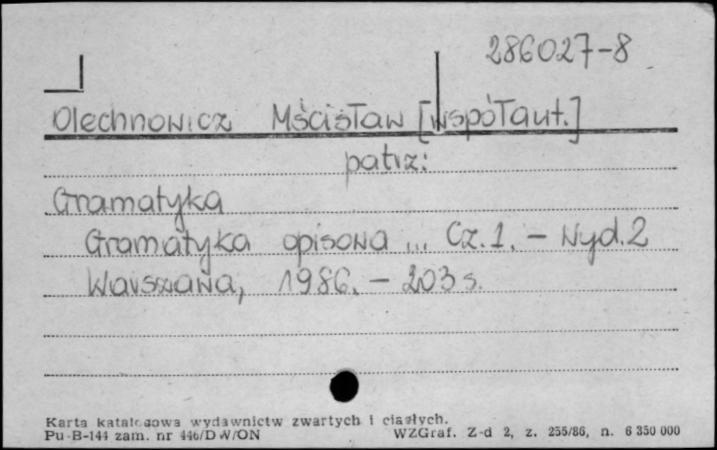 286027-8
Olechnowicz Mścisław [współaut.]
patrz:
Gramatyka
Gramatyka opisowa ... Cz.1. - Wyd.2
Warszawa, 1986. - 203 s.
Karta katalogowa wydawnictw zwartych i ciągłych.
Pu-B-144 zam. nr 446/DW/ON WZGraf. Z-d 2, z. 255/86, n. 6 350 000